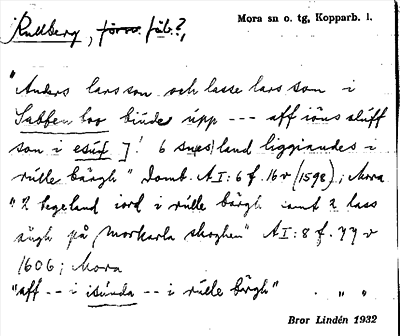 Rullberg, försv. fäb.?,
Mora sn o. tg, Kopparb. l.
"Anders larsson och lasse larsson i
Sabbenboo biuder upp --- aff iöns oluff
son i esuf ]! 6 snes land liggiandes i
rulle bärgh" Domb. A I: 6 f. 16 v (1598); Mora
"2 tegeland iord i rulle bärgh samt 2 lass
ängh på Morkarla skoghen" A I: 8 f. 77 v
1606; Mora
"aff -- i isunda -- i rulle bärgh" " "
Bror Lindén 1932